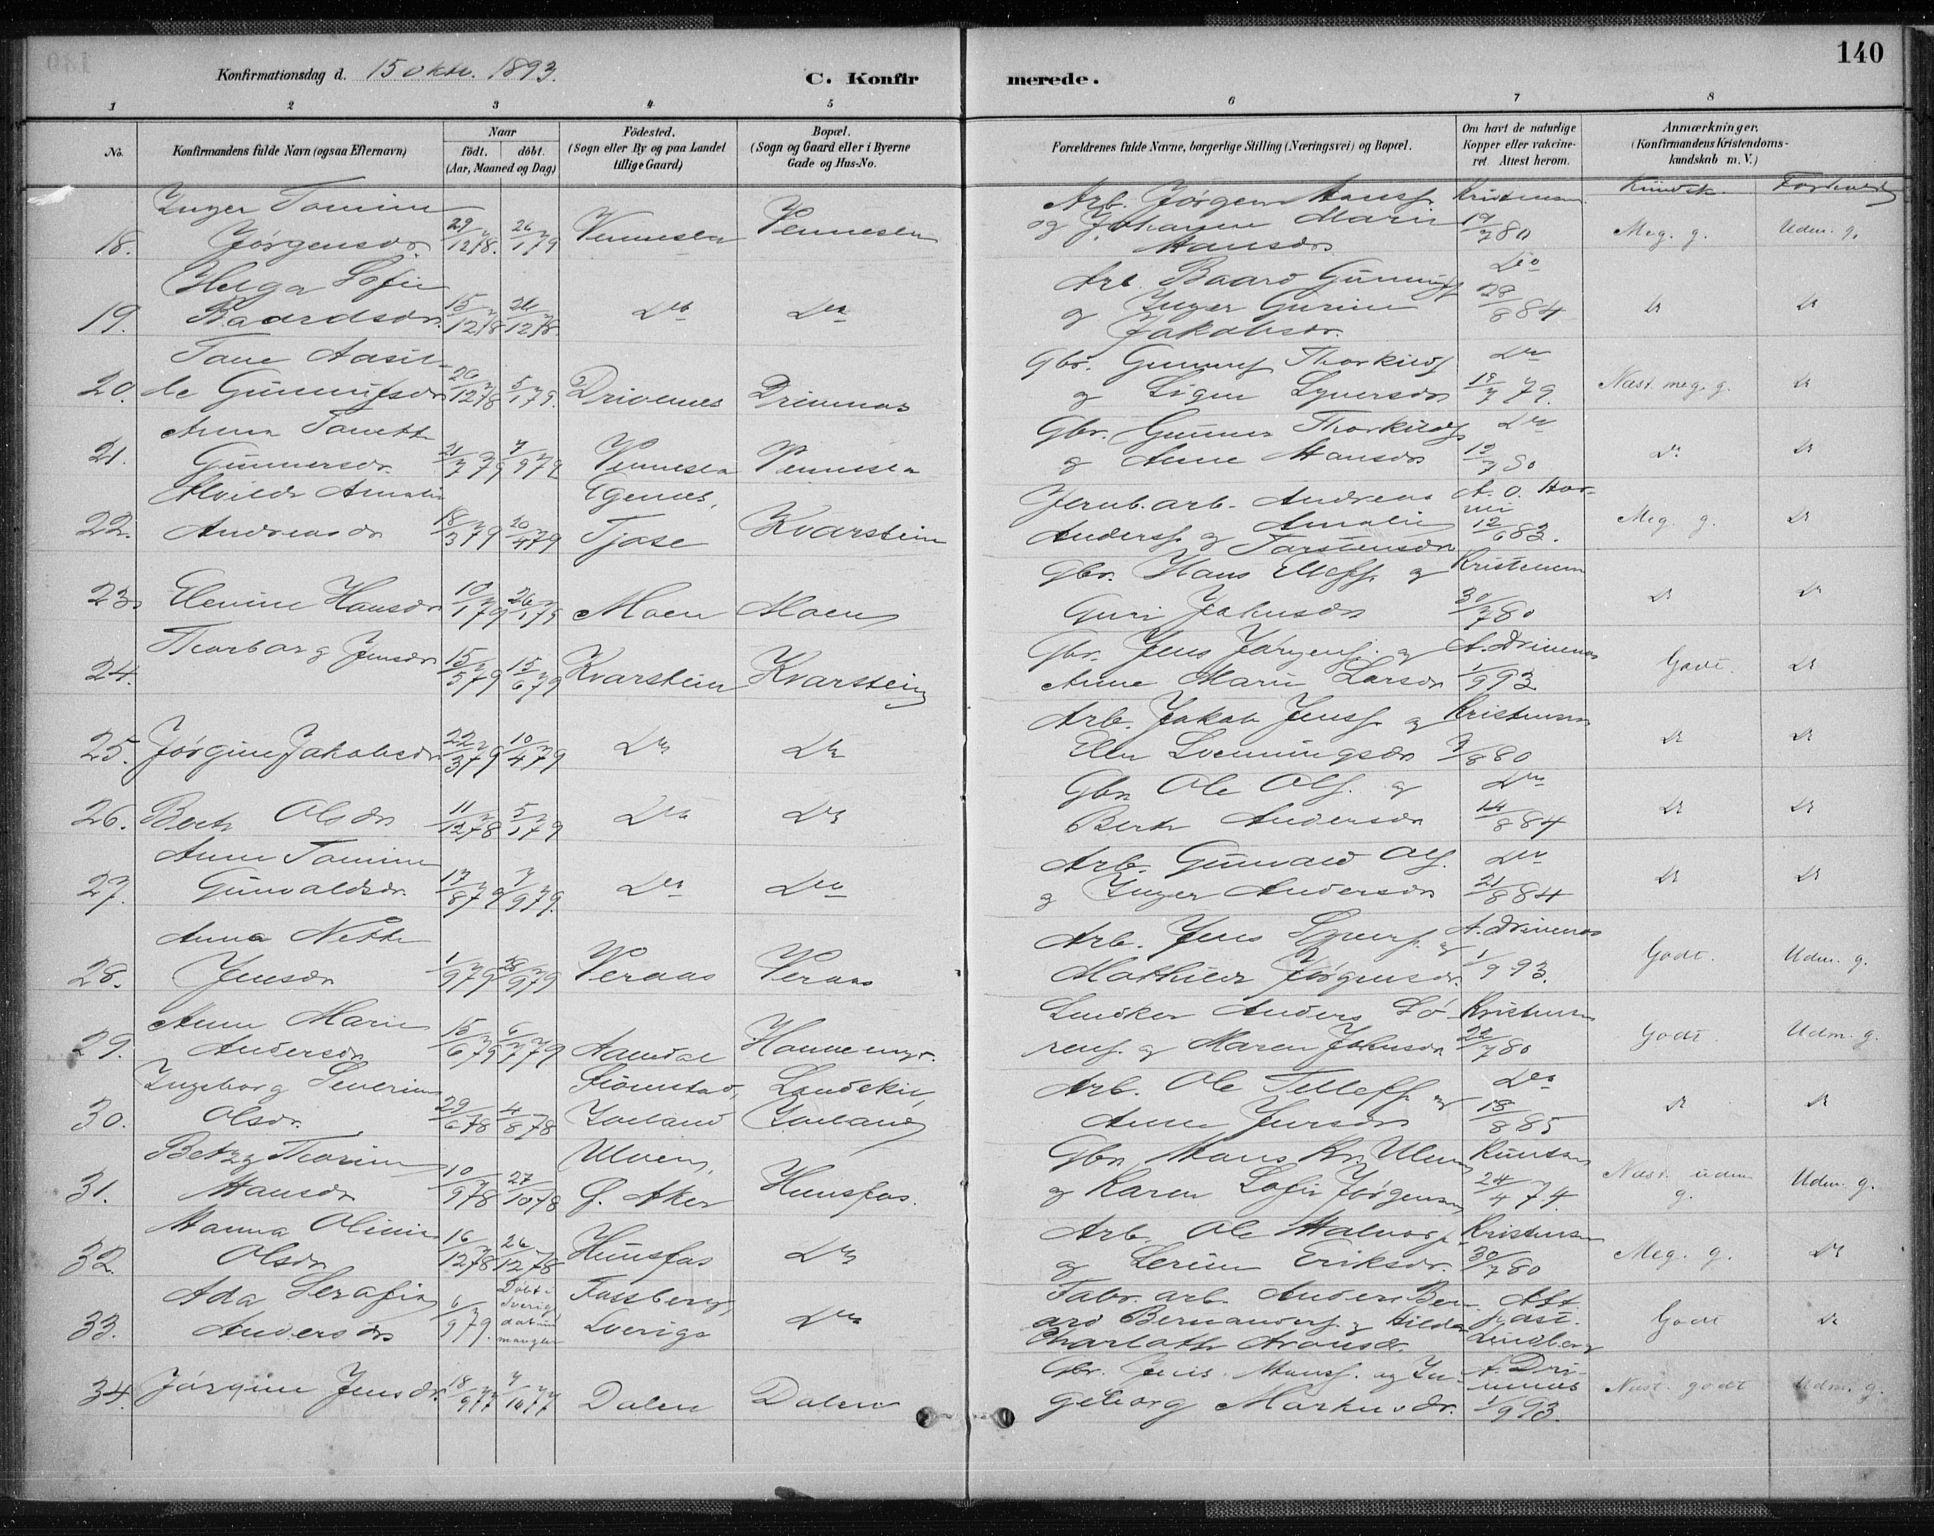 140
Konfirmationsdag d. 15 oktr. 1893.
C. Konfir merede.
1 2 3 4 5 6 7 8
No.
Konfirmandens fulde Navn (ogsaa Efternavn)
Naar
födt. döbt.
(Aar, Maaned og Dag)
Födested.
(Sogn eller By og paa Landet
tillige Gaard)
Bopæl.
(Sogn og Gaard eller i Byerne
Gade og Hus-No.
Forældrenes fulde Navne, borgerlige Stilling (Næringsvei) og Bopæl.
Om havt de naturlige
Kopper eller vakcine-
ret. Attest herom.
Anmærkninger.
(Konfirmandens Kristendoms-
kundskab m. V.)
Kundsk. Forhold
Inger Tomine Arb. Jørgen Hansf. Kristensen
18. Jørgensdr. 29/12 78. 26/1 79 Vennesla Vennesla og Johanne Marie 19/7 80 Meg. g. Udm. g.
Hansdr.
Helga Sofie Arb. Baard Gunnufsf Do
19. Baardsdr. 15/12 78 26/12 78 Do Do og Inger Gurine 28/8 84 Do Do
Jakobsdr.
Tane Aasil- Gbr. Gunnuf Thorkildsf Do
20. de Gunnufsdr 20/12 78 5/1 79. Drivenes Drivenes og Signe Syversdr 19/7 79. Næst. meg. g. Do
Anna Tonette Gbr. Gunner Thorkildsf Do
21. Gunnersdr. 21/7 79 7/9 79 Vennesla Vennesla og Anne Hansdr 13/7 80 Do Do
Alvilde Amalie Egenes, Jernb. arb. Andreas A. O. Hor-
22. Andreasdr 18/3 79 20/4 79 Tjose Kvarstein Andersf. og Amalie Torstensdr 12/6 83. Meg. g. Do
Gbr. Hans Ellefsf. og Kristensen
23. Elevine Hansdr 10/1 79 26/1 79 Moen Moen Guri Jakobsdr 30/7 80 Do Do
Thorborg Jensdr Gbr. Jens Jørgensf. og A. Drivenes
24. 15/5 79 15/6 79 Kvarstein Kvarstein Anne Marie Larsdr 1/9 93. Godt. Do
Arb. Jakob Jensf. og Kristensen
25. Jørgine Jakobsdr. 22/3 79 10/4 79 Do Do Ellen Svenningsdr 3/8 80 Do Do
Gbr. Ole Olsf. og Do
26. Berte Olsdr 11/12 78 5/1 79 Do Do Berte Andersdr 14/8 84 Do Do
Anne Tomine Arb. Gunvald Olsf. Do
27. Gunvaldsdr. 17/8 79 7/9 79. Do Do og Inger Andersdr 21/8 84 Do Do
Anna Nette Arb. Jens Syversf. og A. Drivenes
28. Jensdr 1/9 79 28/9 79 Veraas Veraas Mathilde Jørgensdr. 1/9 93. Godt. Udm. g.
Anne Marie Snedker Anders Sø- Kristensen
29. Andersdr 15/6 79 6/7 79 Aamdal Honnemyr. rensf. og Maren Jakobsdr 22/7 80 Godt. Udm. g.
Ingeborg Severine Landskil, Arb. Ole Tellefsf. og Do
30. Olsdr. 29/6 78 4/8 78 Iveland Iveland Anne Jensdr 18/8 85 Do Do
Betzy Thorine Ulven, Gbr Hans Kr. Ulven Knutsen
31. Hansdr 10/9 78 27/10 78 Ø. Aker Hunsfos. og Karen Sofie Jørgensen 24/4 74. Næst. udm g. Udm. g.
Hanna Oline Arb. Ole Halvorsf. Kristensen
32. Olsdr 16/12 78 26/12 78 Hunsfos Do og Serine Eriksdr. 30/7 80 Meg. g. Do
Ada Serafia Døbt i Sverige datum mangler Fossberg, Fabr. arb. Anders Ber- Att.
33. Andersdr 6/9 79. Sverige Do ard Bernandersf. og Hilda Charlotte Aronsdr. Lindberg Godt Do
Gbr. Jens Hansf. og In- A. Dri-
34. Jørgine Jensdr. 18/9 77 7/10 77 Dalen Dalen geborg Markusdr. venes 1/9 93. Næst. godt Udm. g.